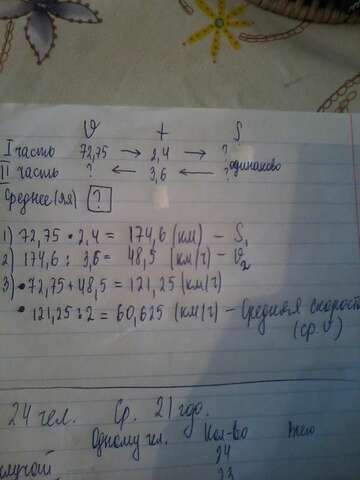 v t S
I часть 72,75 → 2,4 → ? одинаково
II часть ? ← 3,6 ← ?
Среднее(яя) ?
1) 72,75 · 2,4 = 174,6 (км) – S₁
2) 174,6 : 3,6 = 48,5 (км/г) – v₂
3) • 72,75 + 48,5 = 121,25 (км/г)
• 121,25 : 2 = 60,625 (км/г) – Средняя скорост
(ср. v)
24 чел. Ср. 21 годо.
Одному чел. Кол-во
случай 24
23